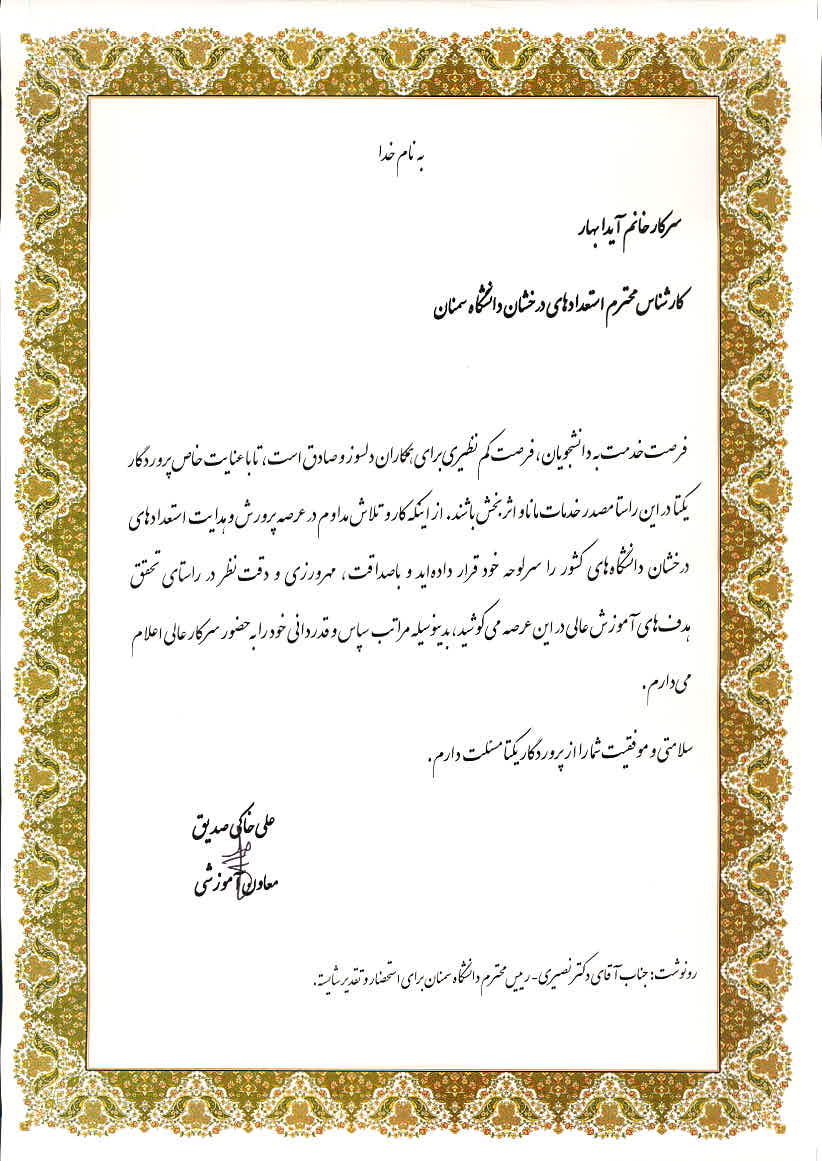 به نام خدا
سرکار خانم آیدا بهار
کارشناس محترم استعدادهای درخشان دانشگاه سمنان
فرصت خدمت به دانشجویان، فرصت کم نظیری برای همکاران دلسوز و صادق است، تا با عنایت خاص پروردگار
یکتا در این راستا مصدر خدمات مانا و اثربخش باشند. از اینکه کار و تلاش مداوم در عرصه پرورش و هدایت استعدادهای
درخشان دانشگاه‌های کشور را سرلوحه خود قرار داده‌اید و با صداقت، مهرورزی و دقت نظر در راستای تحقق
هدف‌های آموزش عالی در این عرصه می‌کوشید، بدینوسیله مراتب سپاس و قدردانی خود را به حضور سرکار عالی اعلام
می‌دارم.
سلامتی و موفقیت شما را از پروردگار یکتا مسئلت دارم.
علی خاکی صدیق
معاون آموزشی
رونوشت: جناب آقای دکتر نصیری - رییس محترم دانشگاه سمنان برای استحضار و تقدیر شایسته.